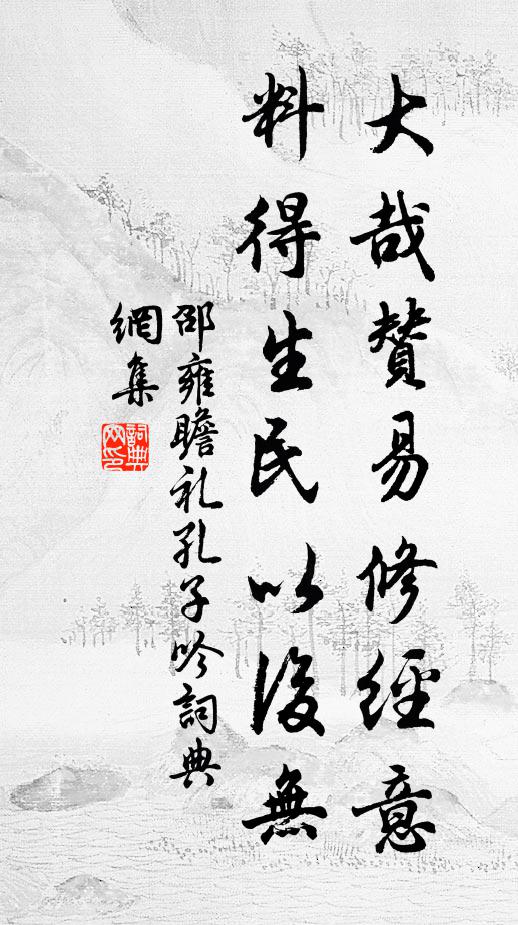 大哉贊易修經意
料得生民以後無
邵雍瞻礼孔子吟詞典
網集
詞典
網印